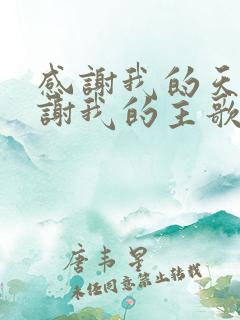 感謝我的天
謝我的主歌
唐韦星
未经同意禁止转载